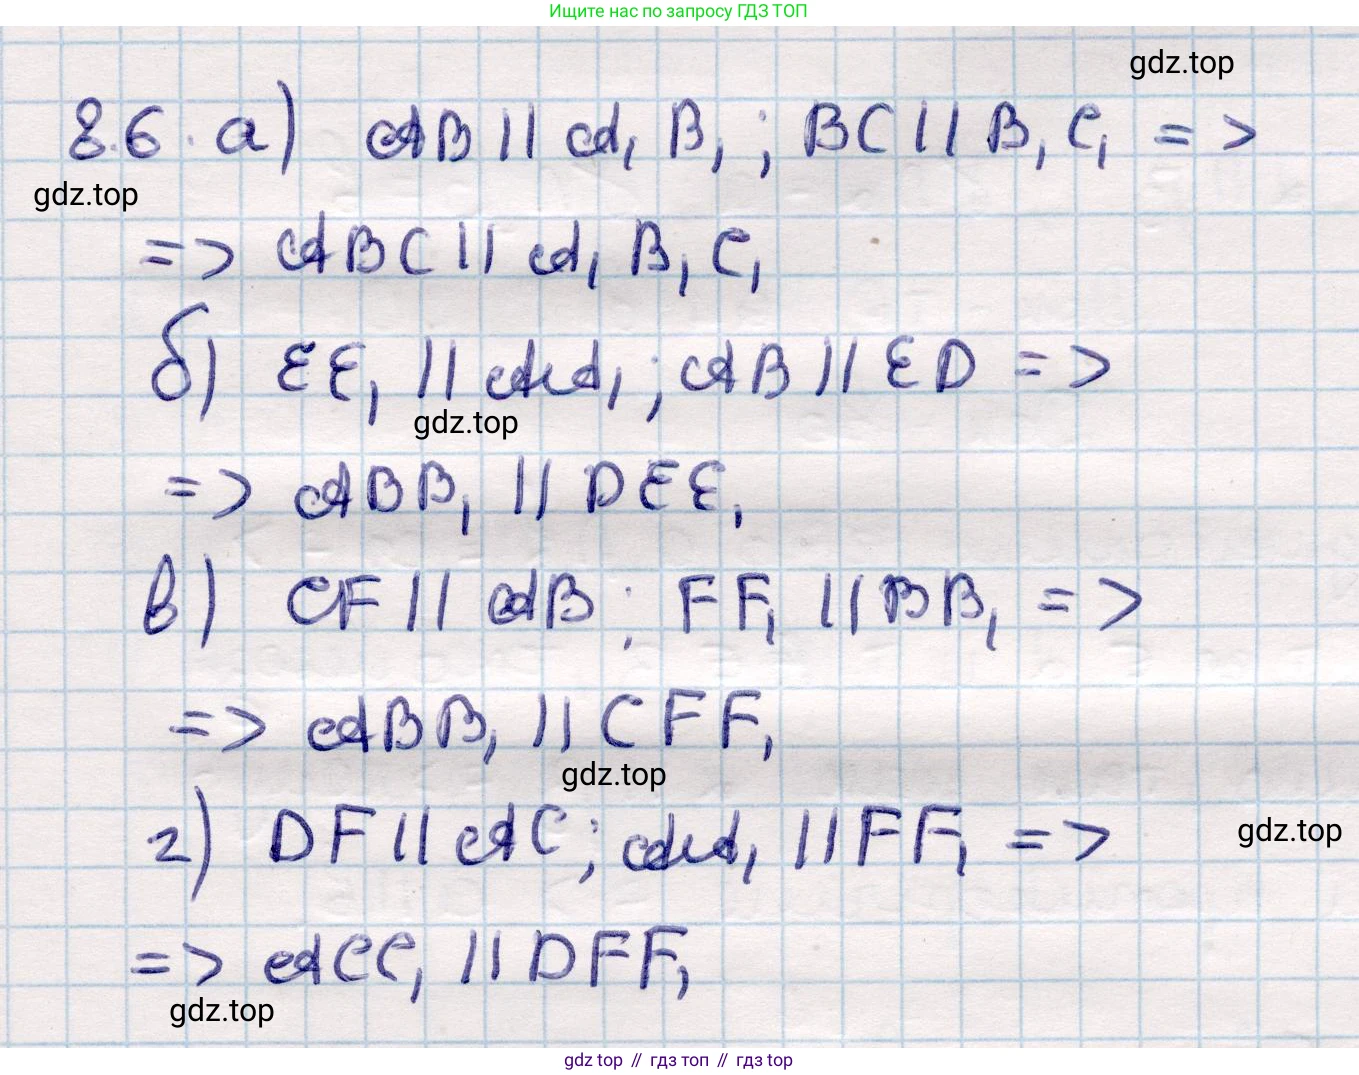 Ищите нас по запросу ГДЗ ТОП
gdz.top
8.6. а) AB || A₁B₁; BC || B₁C₁ =>
gdz.top
=> ABC || A₁B₁C₁
б) EE₁ || AA₁; AB || ED =>
gdz.top
=> ABB₁ || DEE₁
в) CF || AB; FF₁ || BB₁ =>
=> ABB₁ || CFF₁
gdz.top
г) DF || AC; AA₁ || FF₁ =>
gdz.top
=> ACC₁ || DFF₁
gdz.top
gdz top // гдз топ // gdz top